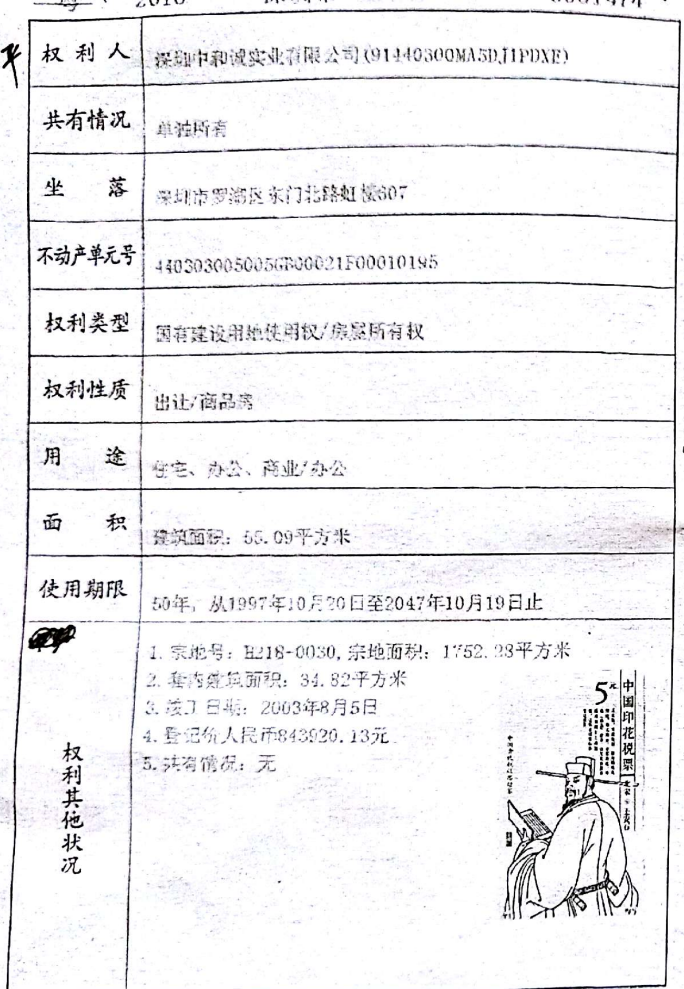 2018
权利人 深圳中和诚实业有限公司(91440300MA5DJ1PDXE)
共有情况 单独所有
坐落 深圳市罗湖区东门北路虹楼607
不动产单元号 440303005005GB00021F00010195
权利类型 国有建设用地使用权/房屋所有权
权利性质 出让/商品房
用途 住宅、办公、商业/办公
面积 建筑面积：55.09平方米
使用期限 50年，从1997年10月20日至2047年10月19日止
权利其他状况
1. 宗地号：H218-0030, 宗地面积：1752.28平方米
2. 套内建筑面积：34.82平方米
3. 竣工日期：2003年8月5日
4. 登记价人民币843920.13元
5. 共有情况：无
5元
中国印花税票